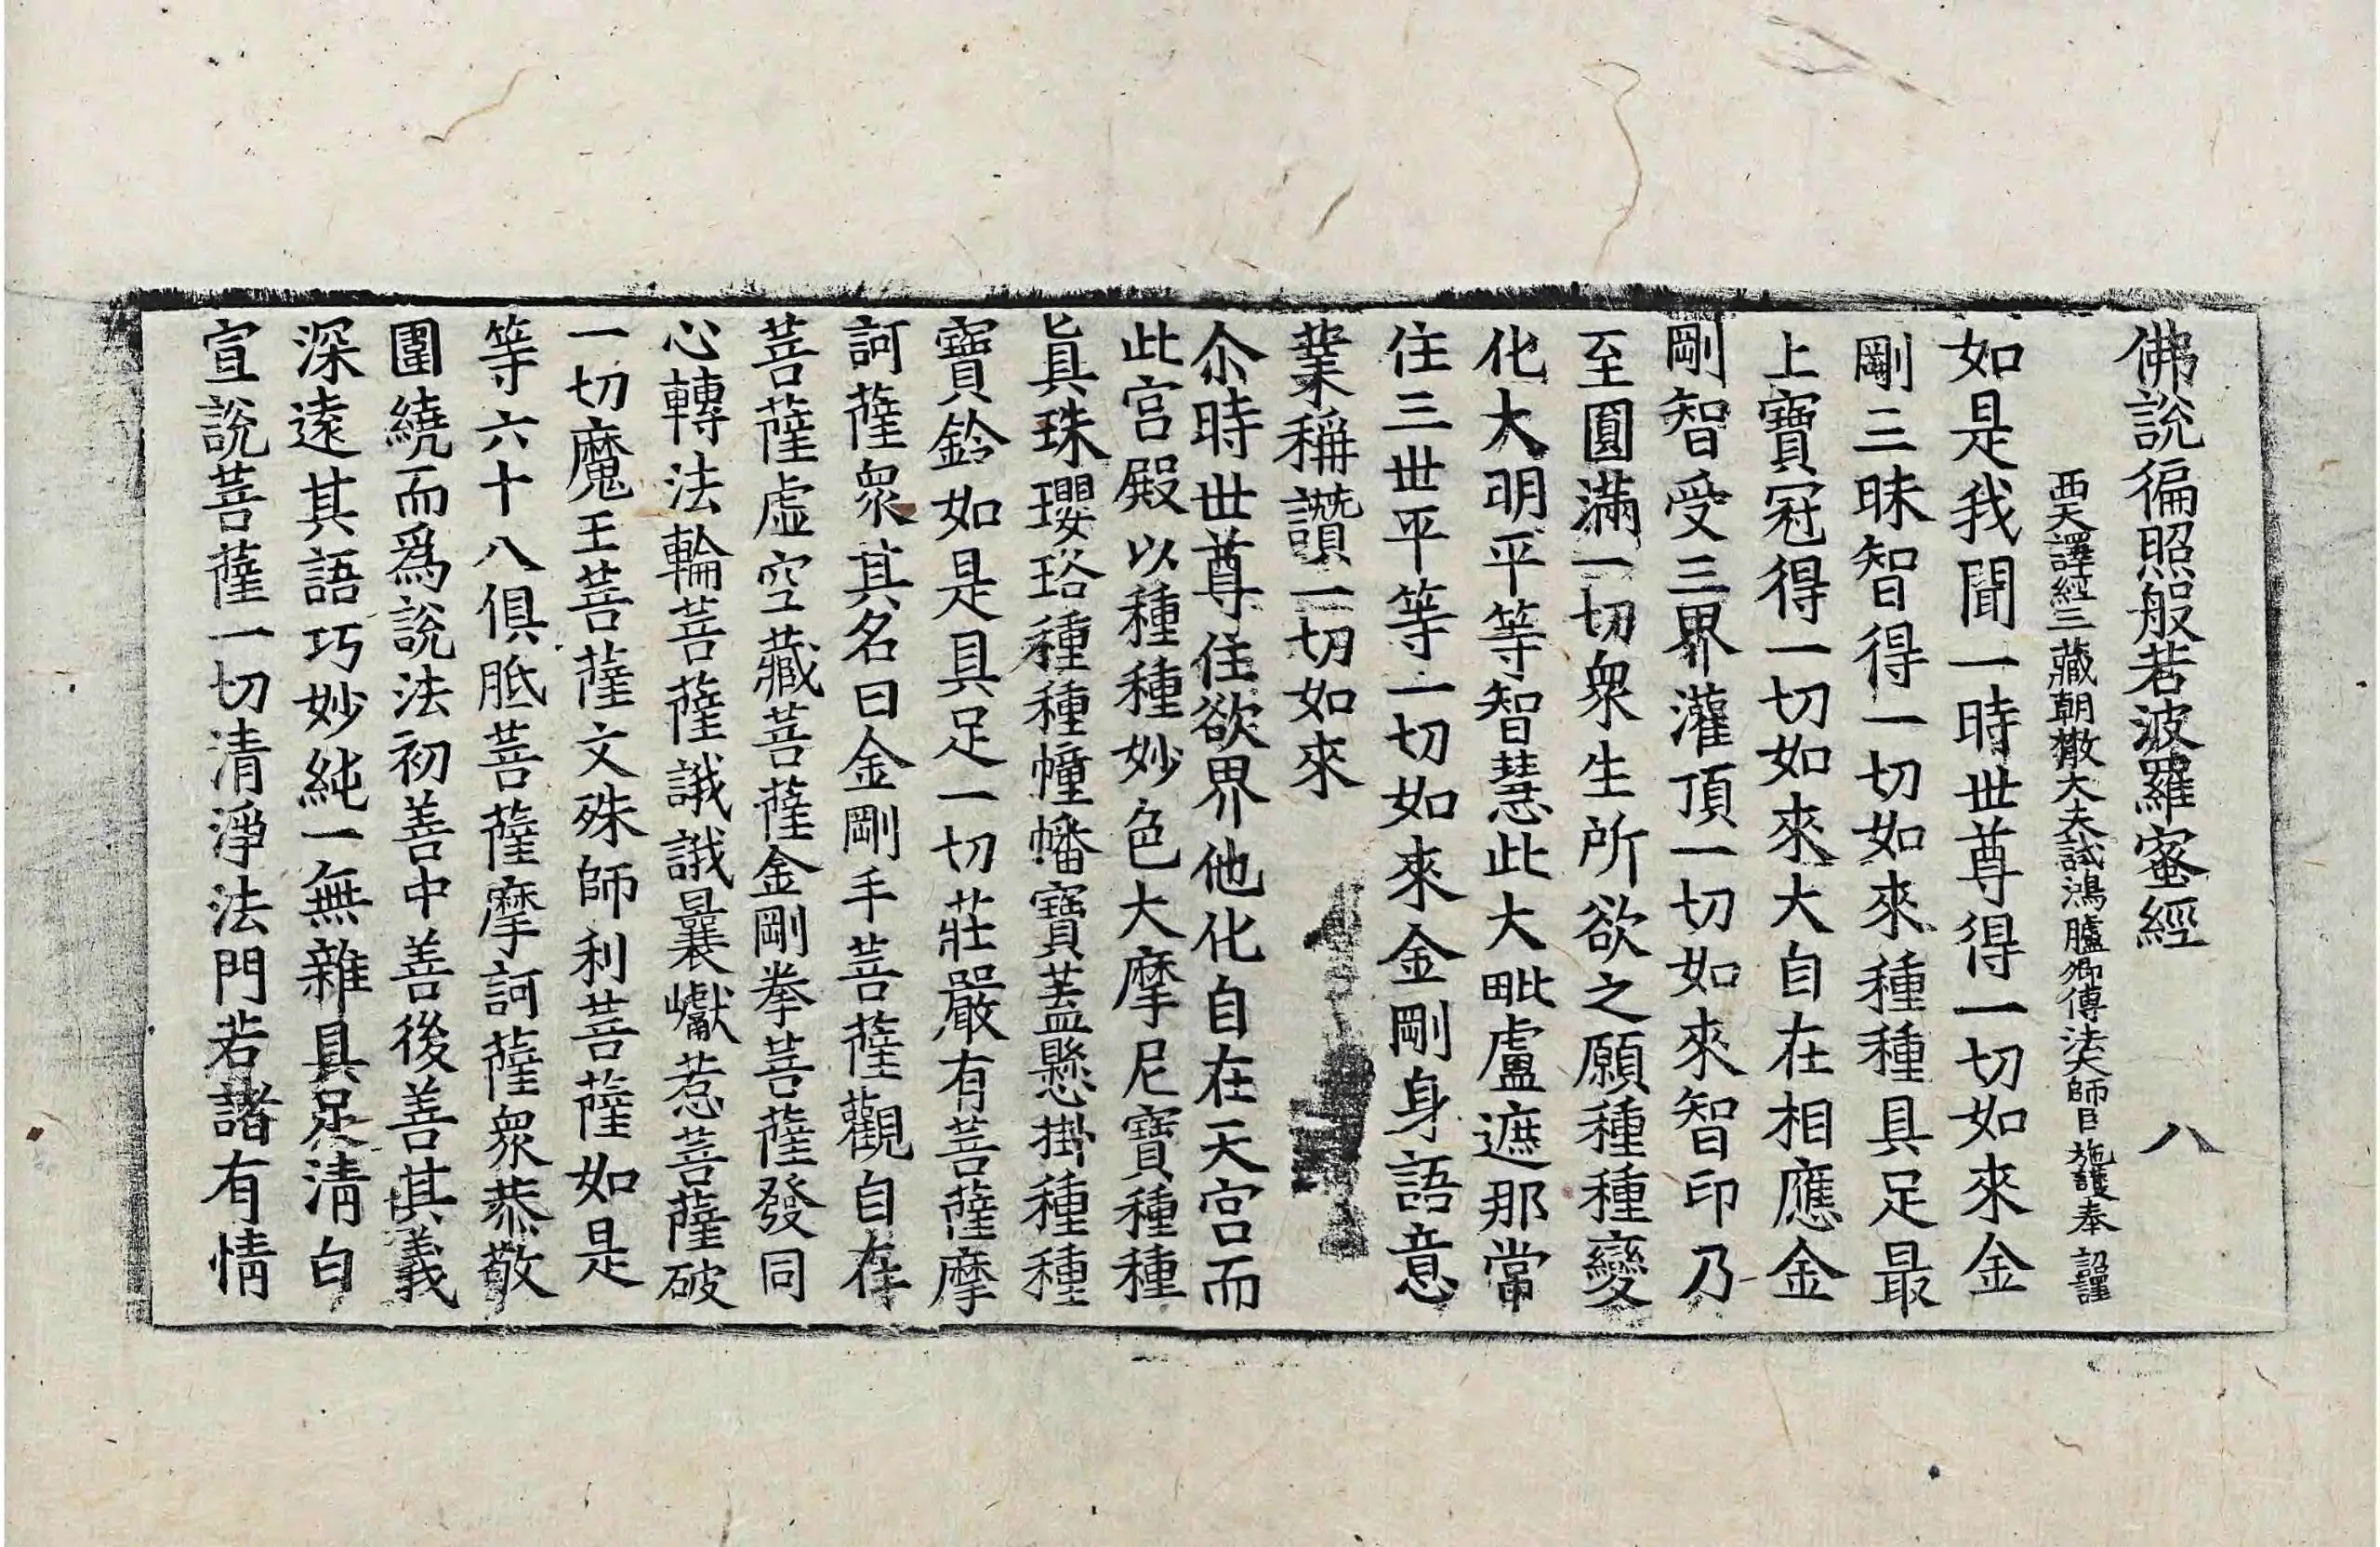 佛說徧照般若波羅蜜經 八
西天譯經三藏朝散大夫試鴻臚卿傳法大師臣施護奉 詔譯
如是我聞一時世尊得一切如來金
剛三昧智得一切如來種種具足最
上寶冠得一切如來大自在相應金
剛智受三界灌頂一切如來智印乃
至圓滿一切衆生所欲之願種種變
化大明平等智慧此大毗盧遮那當
住三世平等一切如來金剛身語意
業稱讚一切如來
尒時世尊住欲界他化自在天宮而
此宮殿以種種妙色大摩尼寶種種
眞珠瓔珞種種幢幡寶蓋懸掛種種
寶鈴如是具足一切莊嚴有菩薩摩
訶薩衆其名曰金剛手菩薩觀自在
菩薩虛空藏菩薩金剛拳菩薩發同
心轉法輪菩薩誐誐曩巘惹菩薩破
一切魔王菩薩文殊師利菩薩如是
等六十八俱胝菩薩摩訶薩衆恭敬
圍繞而爲說法初善中善後善其義
深遠其語巧妙純一無雜具足淸白
宣說菩薩一切淸淨法門若諸有情